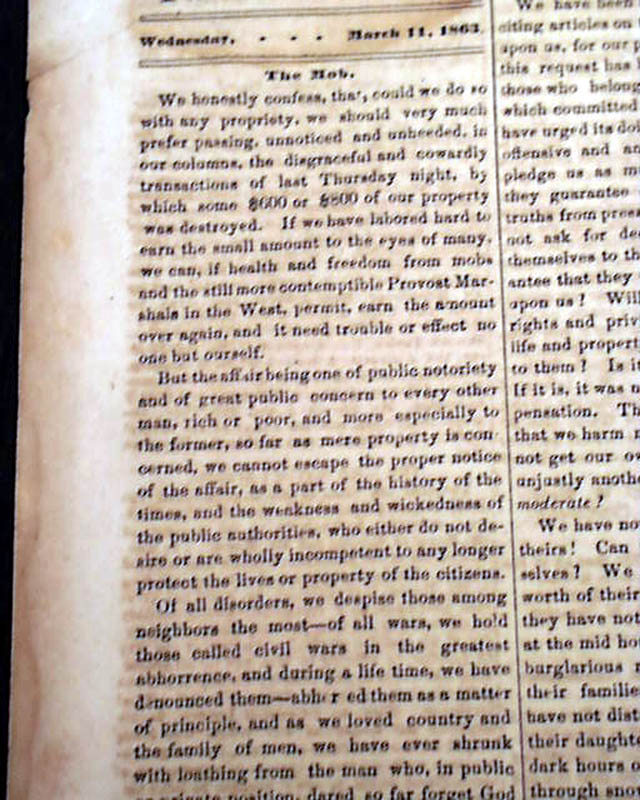 Wednesday, - - - March 11, 1863.
The Mob.
We honestly confess, that, could we do so
with any propriety, we should very much
prefer passing, unnoticed and unheeded, in
our columns, the disgraceful and cowardly
transactions of last Thursday night, by
which some $600 or $800 of our property
was destroyed. If we have labored hard to
earn the small amount to the eyes of many,
we can, if health and freedom from mobs
and the still more contemptible Provost Mar-
shals in the West, permit, earn the amount
over again, and it need trouble or effect no
one but ourself.
But the affair being one of public notoriety
and of great public concern to every other
man, rich or poor, and more especially to
the former, so far as mere property is con-
cerned, we cannot escape the proper notice
of the affair, as a part of the history of the
times, and the weakness and wickedness of
the public authorities, who either do not de-
sire or are wholly incompetent to any longer
protect the lives or property of the citizens.
Of all disorders, we despise those among
neighbors the most—of all wars, we hold
those called civil wars in the greatest
abhorrence, and during a life time, we have
denounced them—abher ed them as a matter
of principle, and as we loved country and
the family of men, we have ever shrunk
with loathing from the man who, in public
or private position, dared so far forget God
We have been
citing articles on
upon us, for our p
this request has
those who belong
which committed
have urged its do
offensive and an
pledge us as m
they guarantee
truths from pres
not ask for de
themselves to th
antee that they
upon us? Will
rights and privi
life and propert
to them? Is it
If it is, it was n
pensation. Th
that we harm n
not get our ow
unjustly anothe
moderate?
We have no
theirs! Can
selves? We
worth of their
they have not
at the mid hou
burglarious
their familie
have not dist
their daughte
dark hours o
through snow